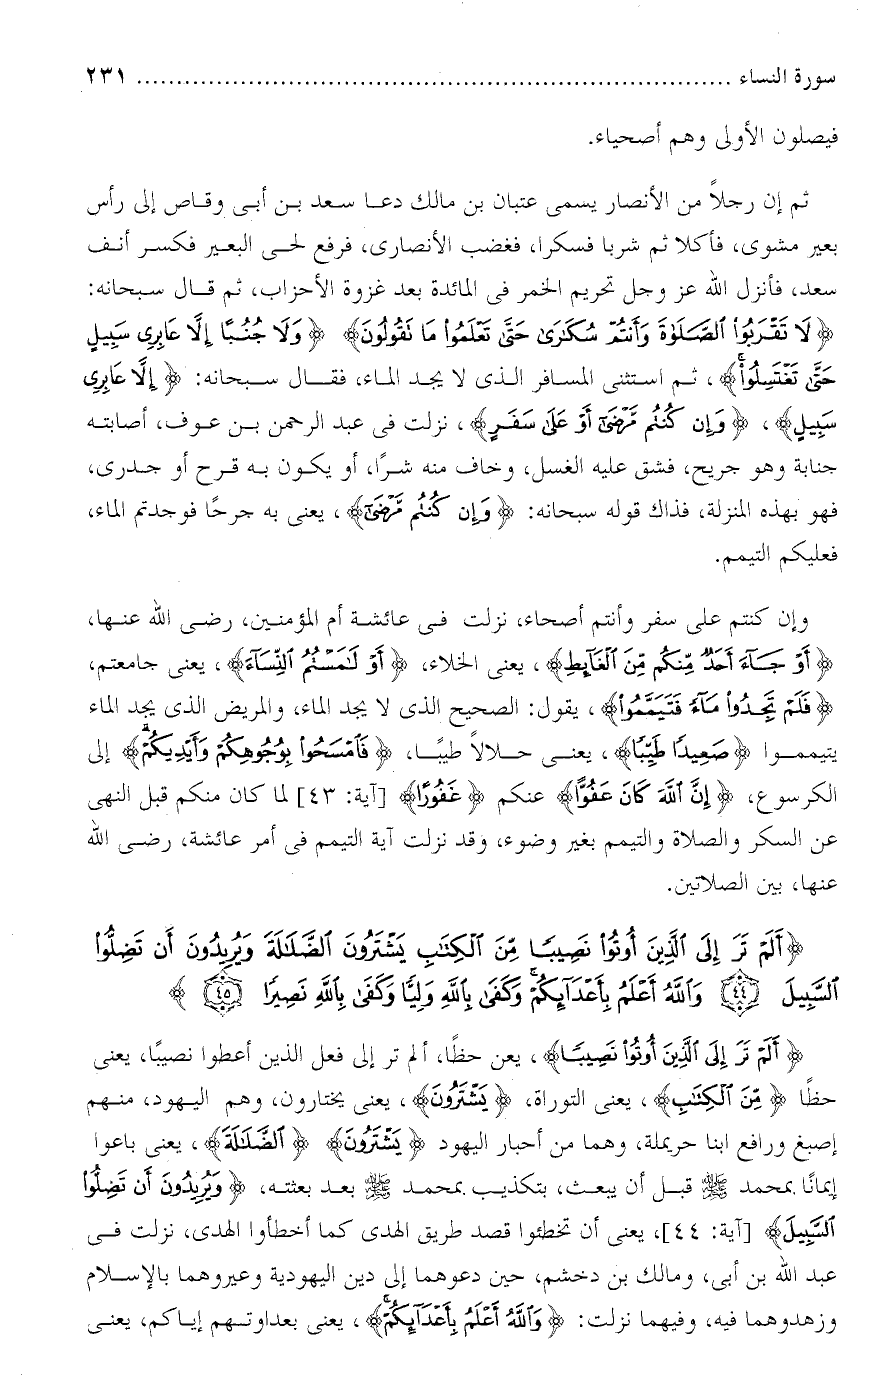 سورة النساء ........................................................................... ٢٣١
فيصلون الأولى وهم أصحياء.
ثم إن رجلاً من الأنصار يسمى عتبان بن مالك دعا سعد بن أبى وقاص إلى رأس
بعير مشوى، فأكلا ثم شربا فسكرا، فغضب الأنصارى، فرفع لحى البعير فكسر أنف
سعد، فأنزل الله عز وجل تحريم الخمر فى المائدة بعد غزوة الأحزاب، ثم قال سبحانه:
﴿ لَا تَقْرَبُوا۟ ٱلصَّلَوٰةَ وَأَنتُمْ سُكَٰرَىٰ حَتَّىٰ تَعْلَمُوا۟ مَا تَقُولُونَ﴾ ﴿ وَلَا جُنُبًا إِلَّا عَابِرِى سَبِيلٍ
حَتَّىٰ تَغْتَسِلُوا۟ۚ﴾ ، ثم استثنى المسافر الذى لا يجد الماء، فقال سبحانه: ﴿ إِلَّا عَابِرِى
سَبِيلٍ﴾ ، ﴿ وَإِن كُنتُم مَّرْضَىٰٓ أَوْ عَلَىٰ سَفَرٍ﴾ ، نزلت فى عبد الرحمن بن عوف، أصابته
جنابة وهو جريح، فشق عليه الغسل، وخاف منه شرًا، أو يكون به قرح أو جدرى،
فهو بهذه المنزلة، فذاك قوله سبحانه: ﴿ وَإِن كُنتُم مَّرْضَىٰٓ﴾ ، يعنى به جرحًا فوجدتم الماء،
فعليكم التيمم.
وإن كنتم على سفر وأنتم أصحاء، نزلت فى عائشة أم المؤمنين، رضى الله عنها،
﴿ أَوْ جَآءَ أَحَدٌ مِّنكُم مِّنَ ٱلْغَآئِطِ﴾ ، يعنى الخلاء، ﴿ أَوْ لَٰمَسْتُمُ ٱلنِّسَآءَ﴾ ، يعنى جامعتم،
﴿ فَلَمْ تَجِدُوا۟ مَآءً فَتَيَمَّمُوا۟﴾ ، يقول: الصحيح الذى لا يجد الماء، والمريض الذى يجد الماء
يتيمموا ﴿ صَعِيدًا طَيِّبًا﴾ ، يعنى حلالاً طيبًا، ﴿ فَٱمْسَحُوا۟ بِوُجُوهِكُمْ وَأَيْدِيكُمْۗ﴾ إلى
الكرسوع، ﴿ إِنَّ ٱللَّهَ كَانَ عَفُوًّا﴾ عنكم ﴿ غَفُورًا﴾ [آية: ٤٣] لما كان منكم قبل النهى
عن السكر والصلاة والتيمم بغير وضوء، وقد نزلت آية التيمم فى أمر عائشة، رضى الله
عنها، بين الصلاتين.
﴿أَلَمْ تَرَ إِلَى ٱلَّذِينَ أُوتُوا۟ نَصِيبًا مِّنَ ٱلْكِتَٰبِ يَشْتَرُونَ ٱلضَّلَٰلَةَ وَيُرِيدُونَ أَن تَضِلُّوا۟
ٱلسَّبِيلَ ٤٤ وَٱللَّهُ أَعْلَمُ بِأَعْدَآئِكُمْۚ وَكَفَىٰ بِٱللَّهِ وَلِيًّا وَكَفَىٰ بِٱللَّهِ نَصِيرًا ٤٥ ﴾
﴿ أَلَمْ تَرَ إِلَى ٱلَّذِينَ أُوتُوا۟ نَصِيبًا﴾ ، يعن حظًا، ألم تر إلى فعل الذين أعطوا نصيبًا، يعنى
حظًا ﴿ مِّنَ ٱلْكِتَٰبِ﴾ ، يعنى التوراة، ﴿ يَشْتَرُونَ﴾ ، يعنى يختارون، وهم اليهود، منهم
إصبغ ورافع ابنا حريملة، وهما من أحبار اليهود ﴿ يَشْتَرُونَ﴾ ﴿ ٱلضَّلَٰلَةَ﴾ ، يعنى باعوا
إيمانًا بمحمد ﷺ قبل أن يبعث، بتكذيب بمحمد ﷺ بعد بعثته، ﴿ وَيُرِيدُونَ أَن تَضِلُّوا۟
ٱلسَّبِيلَ﴾ [آية: ٤٤]، يعنى أن تخطئوا قصد طريق الهدى كما أخطأوا الهدى، نزلت فى
عبد الله بن أبى، ومالك بن دخشم، حين دعوهما إلى دين اليهودية وعيروهما بالإسلام
وزهدوهما فيه، وفيهما نزلت: ﴿ وَٱللَّهُ أَعْلَمُ بِأَعْدَآئِكُمْۚ﴾ ، يعنى بعداوتهم إياكم، يعنى